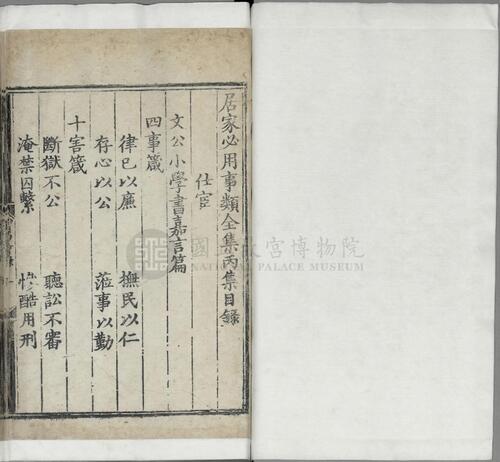 居家必用事類全集丙集目錄
仕宦
文公小學書嘉言篇
四事箴
律己以廉 撫民以仁
存心以公 蒞事以勤
十害箴
斷獄不公 聽訟不審
淹禁囚繫 慘酷用刑
國立故宮博物院
NATIONAL PALACE MUSEUM